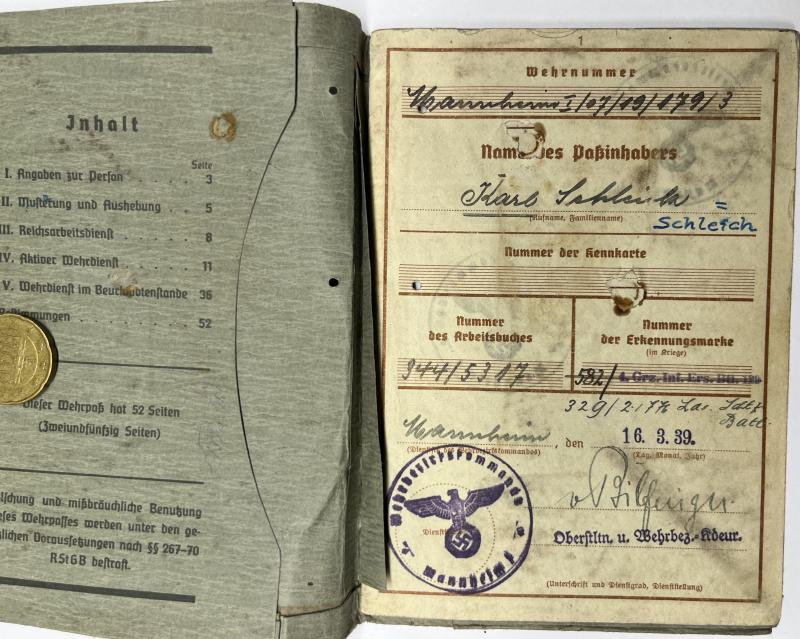 Inhalt
Seite
I. Angaben zur Person . . . . . 3
II. Musterung und Aushebung . . 5
III. Reichsarbeitsdienst . . . . . 8
IV. Aktiver Wehrdienst . . . . . 11
V. Wehrdienst im Beurlaubtenstande 36
52
Dieser Wehrpaß hat 52 Seiten
(Zweiundfünfzig Seiten)
schung und mißbräuchliche Benutzung
eses Wehrpasses werden unter den ge-
lichen Voraussetzungen nach §§ 267–70
RStGB bestraft.
1
Wehrnummer
Mannheim I/07/19/179/3
Name des Paßinhabers
Karl Schleich
(Rufname, Familienname)
= Schleich
Nummer der Kennkarte
Nummer
des Arbeitsbuches
344/5317
Nummer
der Erkennungsmarke
(im Kriege)
582/ 4. Grz. Inf. Ers. Btl.
Mannheim, den 16. 3. 39.
(Tag, Monat, Jahr)
Wehrbezirkskommando
Mannheim I
Oberstltn. u. Wehrbez.-Kdeur.
(Unterschrift und Dienstgrad, Dienststellung)